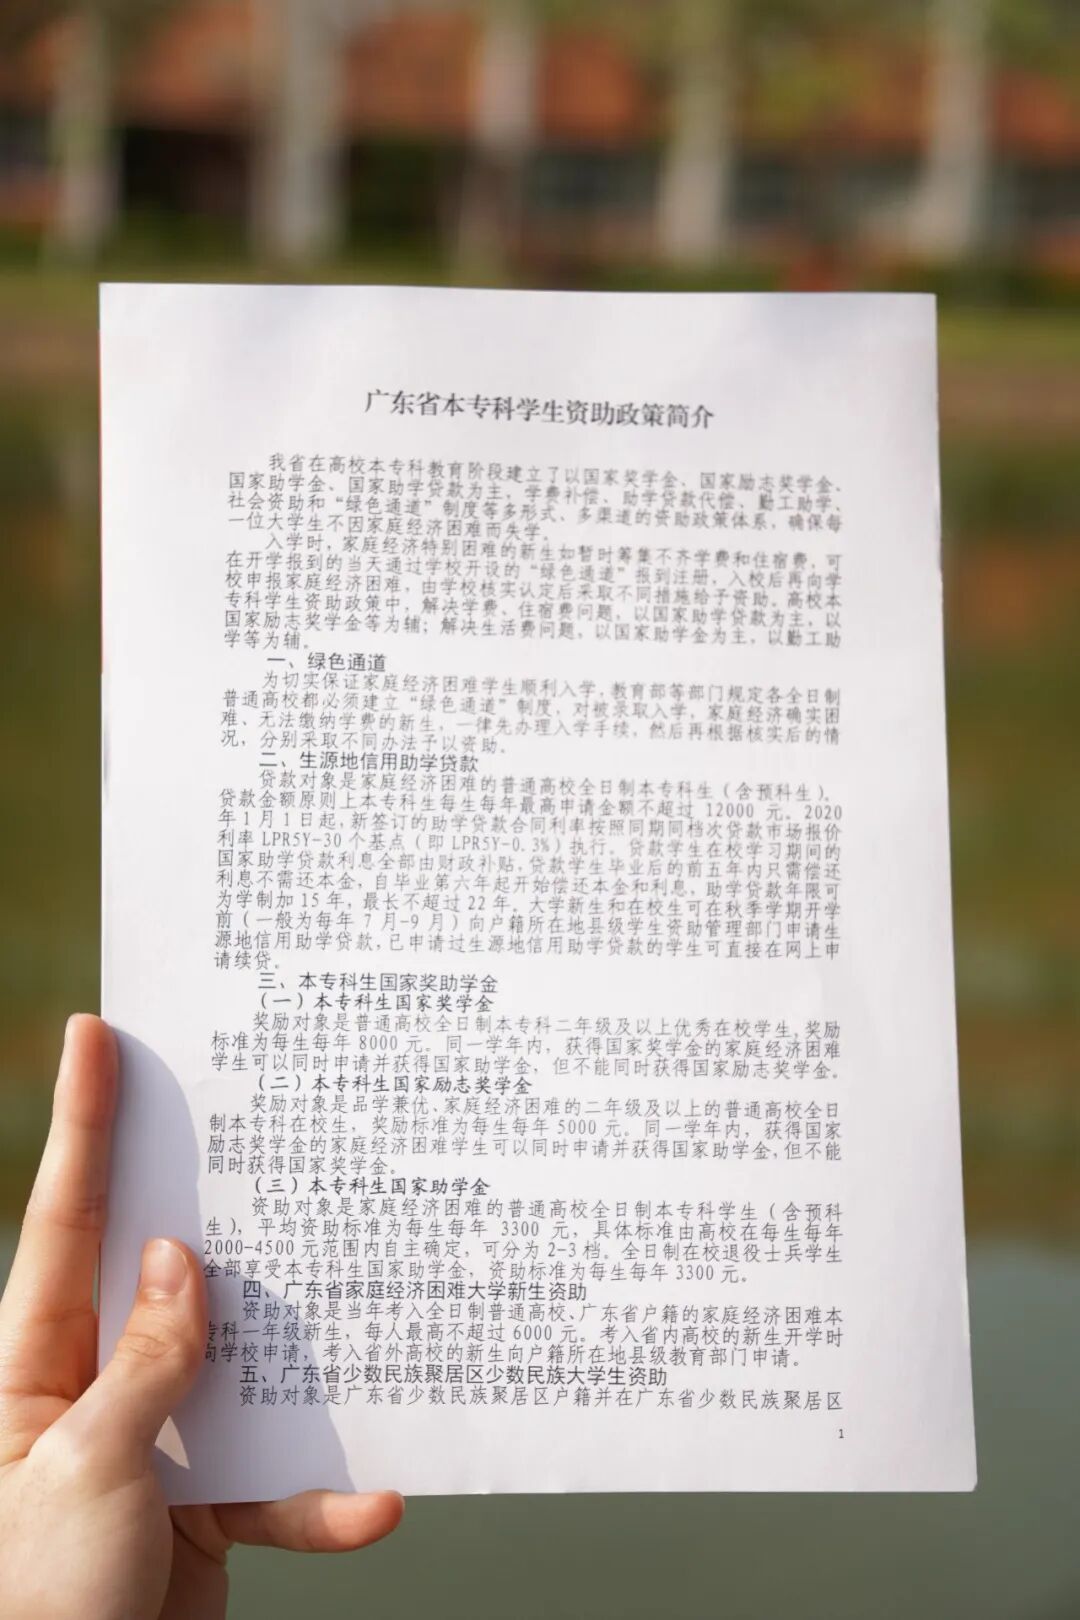 广东省本专科学生资助政策简介
我省在高校本专科教育阶段建立了以国家奖学金、国家励志奖学金、
国家助学金、国家助学贷款为主，学费补偿、助学贷款代偿、勤工助学、
社会资助和“绿色通道”制度等多形式、多渠道的资助政策体系，确保每
一位大学生不因家庭经济困难而失学。
入学时，家庭经济特别困难的新生如暂时筹集不齐学费和住宿费，可
在开学报到的当天通过学校开设的“绿色通道”报到注册，入校后再向学
校申报家庭经济困难，由学校核实认定后采取不同措施给予资助。高校本
专科学生资助政策中，解决学费、住宿费问题，以国家助学贷款为主，以
国家励志奖学金等为辅；解决生活费问题，以国家助学金为主，以勤工助
学等为辅。
一、绿色通道
为切实保证家庭经济困难学生顺利入学，教育部等部门规定各全日制
普通高校都必须建立“绿色通道”制度，对被录取入学，家庭经济确实困
难、无法缴纳学费的新生，一律先办理入学手续，然后再根据核实后的情
况，分别采取不同办法予以资助。
二、生源地信用助学贷款
贷款对象是家庭经济困难的普通高校全日制本专科生（含预科生）。
贷款金额原则上本专科生每生每年最高申请金额不超过 12000 元。2020
年1月1日起，新签订的助学贷款合同利率按照同期同档次贷款市场报价
利率 LPR5Y-30 个基点（即 LPR5Y-0.3%）执行。贷款学生在校学习期间的
国家助学贷款利息全部由财政补贴，贷款学生毕业后的前五年内只需偿还
利息不需还本金，自毕业第六年起开始偿还本金和利息，助学贷款年限可
为学制加 15 年，最长不超过 22 年。大学新生和在校生可在秋季学期开学
前（一般为每年 7 月-9 月）向户籍所在地县级学生资助管理部门申请生
源地信用助学贷款，已申请过生源地信用助学贷款的学生可直接在网上申
请续贷。
三、本专科生国家奖助学金
（一）本专科生国家奖学金
奖励对象是普通高校全日制本专科二年级及以上优秀在校学生，奖励
标准为每生每年 8000 元。同一学年内，获得国家奖学金的家庭经济困难
学生可以同时申请并获得国家助学金，但不能同时获得国家励志奖学金。
（二）本专科生国家励志奖学金
奖励对象是品学兼优、家庭经济困难的二年级及以上的普通高校全日
制本专科在校生，奖励标准为每生每年 5000 元。同一学年内，获得国家
励志奖学金的家庭经济困难学生可以同时申请并获得国家助学金，但不能
同时获得国家奖学金。
（三）本专科生国家助学金
资助对象是家庭经济困难的普通高校全日制本专科学生（含预科
生），平均资助标准为每生每年 3300 元，具体标准由高校在每生每年
2000-4500 元范围内自主确定，可分为 2-3 档。全日制在校退役士兵学生
全部享受本专科生国家助学金，资助标准为每生每年 3300 元。
四、广东省家庭经济困难大学新生资助
资助对象是当年考入全日制普通高校、广东省户籍的家庭经济困难本
专科一年级新生，每人最高不超过 6000 元。考入省内高校的新生开学时
向学校申请，考入省外高校的新生向户籍所在地县级教育部门申请。
五、广东省少数民族聚居区少数民族大学生资助
资助对象是广东省少数民族聚居区户籍并在广东省少数民族聚居区
1